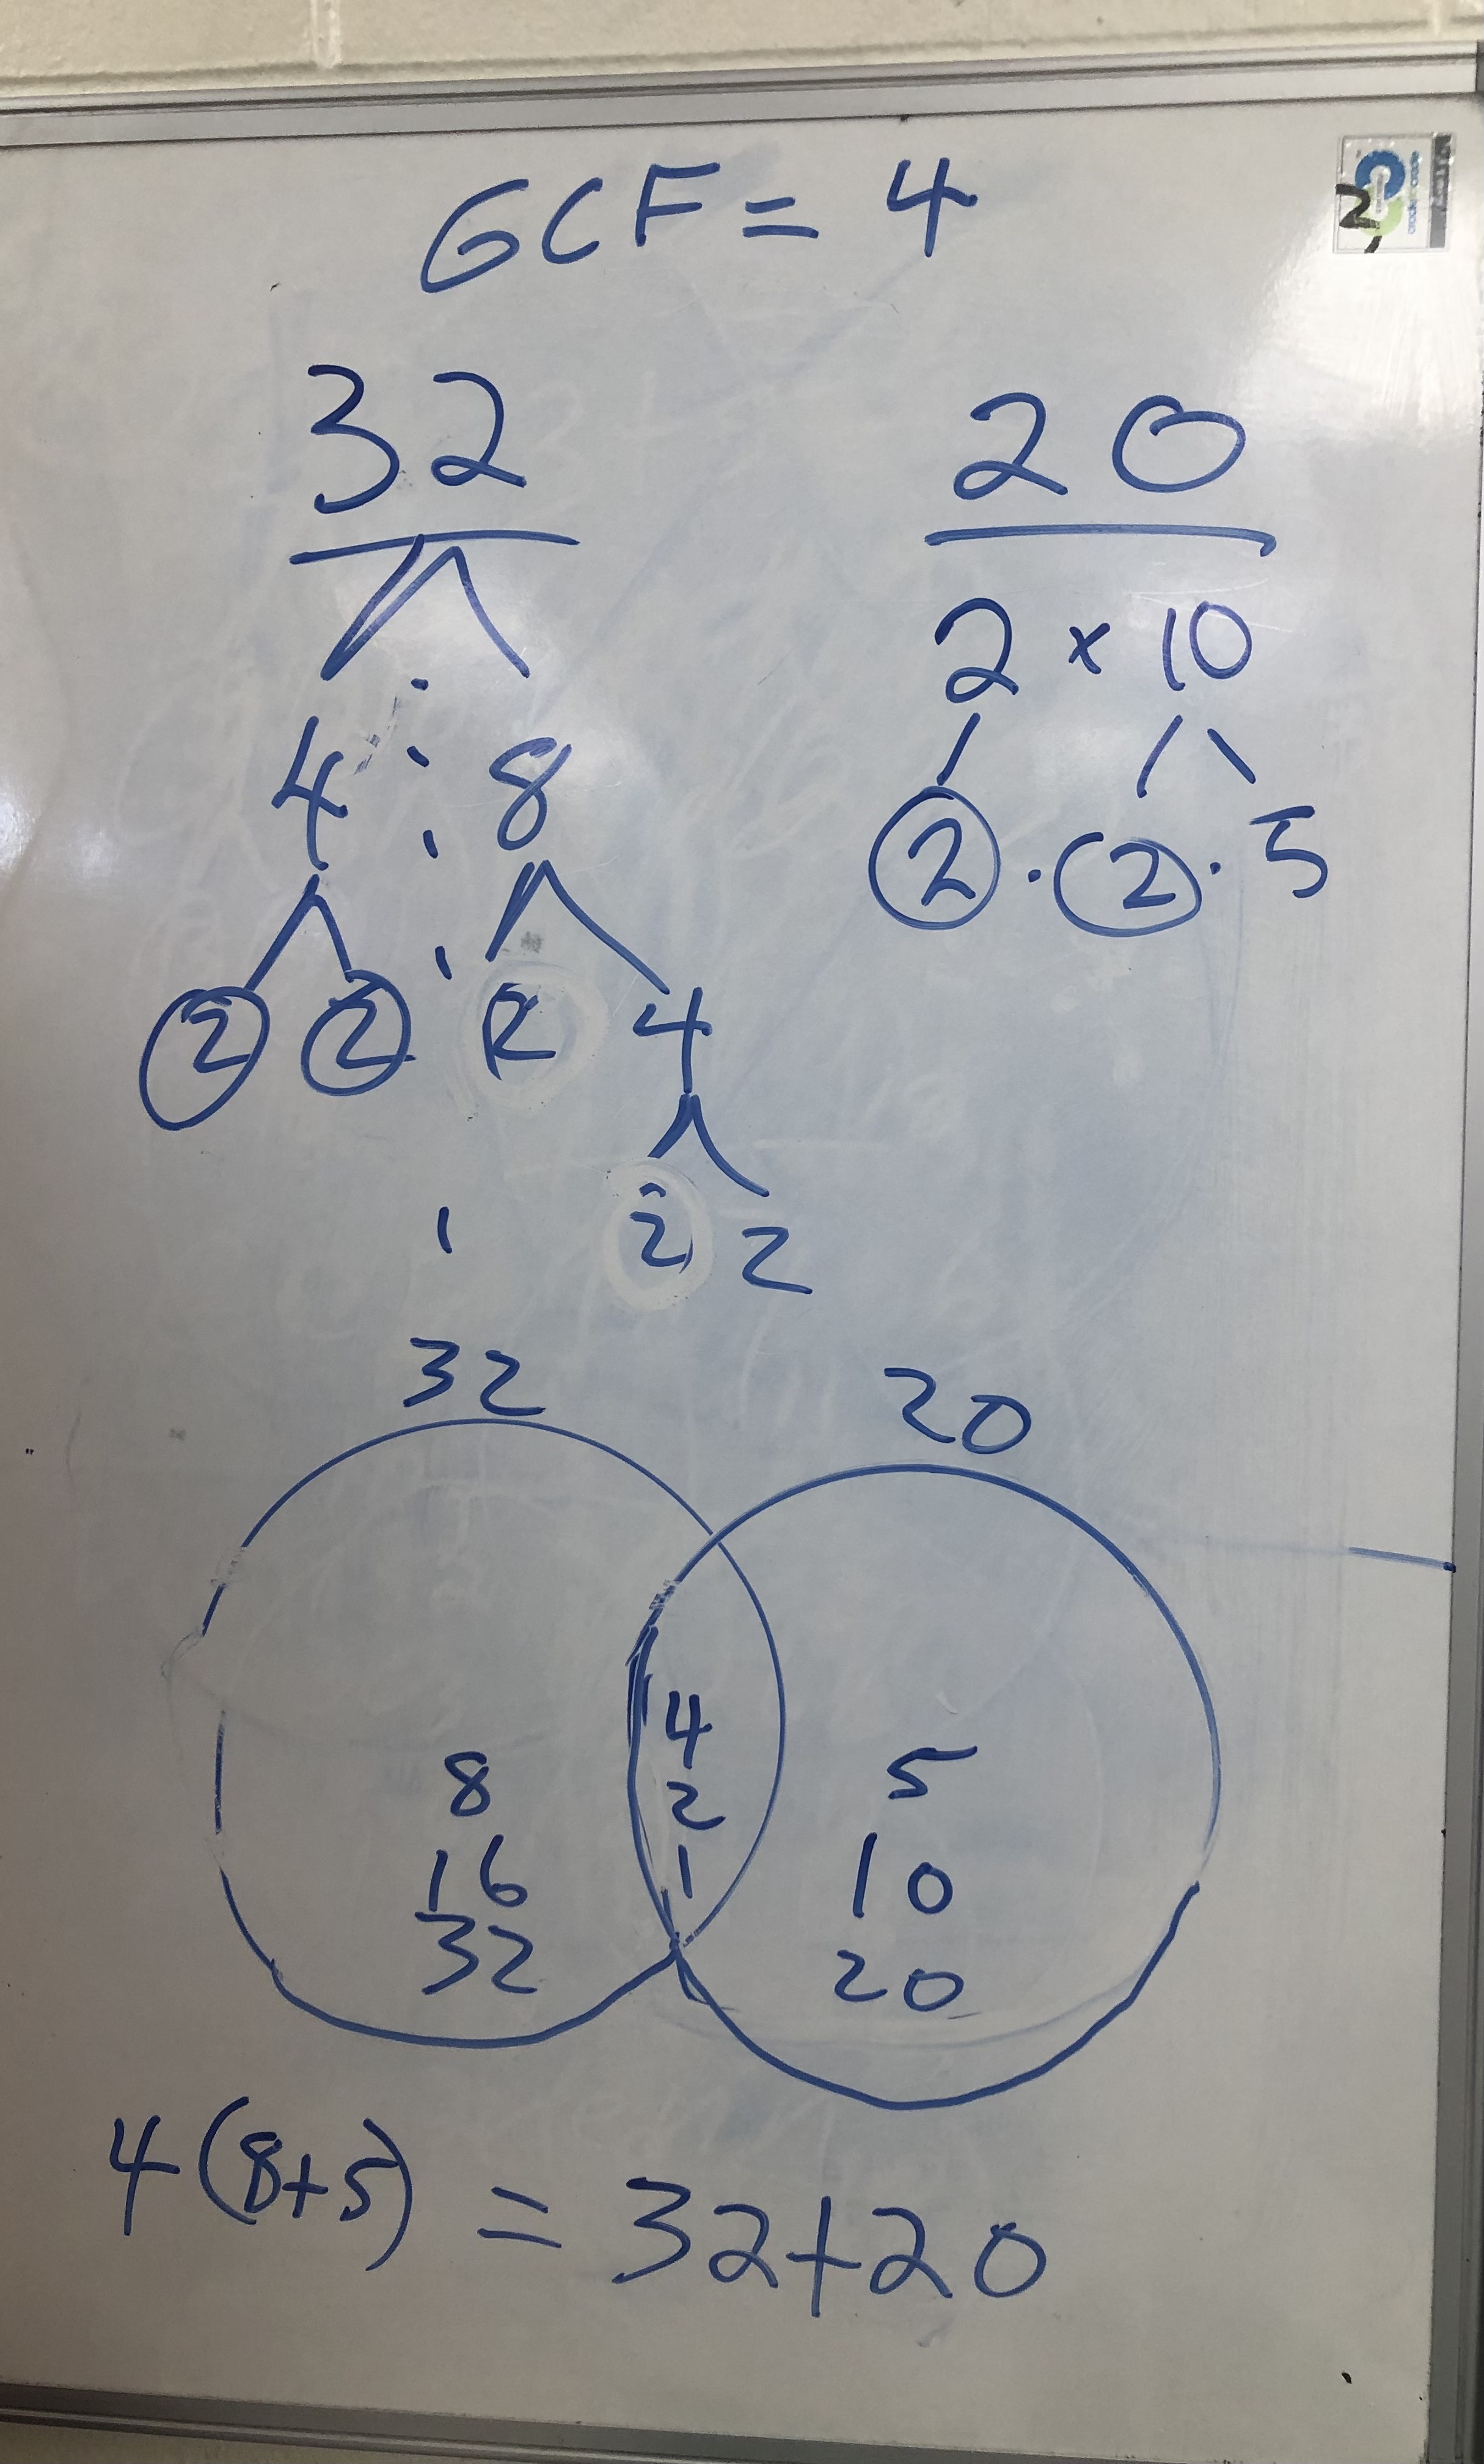 GCF = 4
32
20
2 x 10
4 8
2 · 2 · 5
2 2 2 4
2 2
32
20
4
2
1
8
16
32
5
10
20
4(8+5) = 32+20